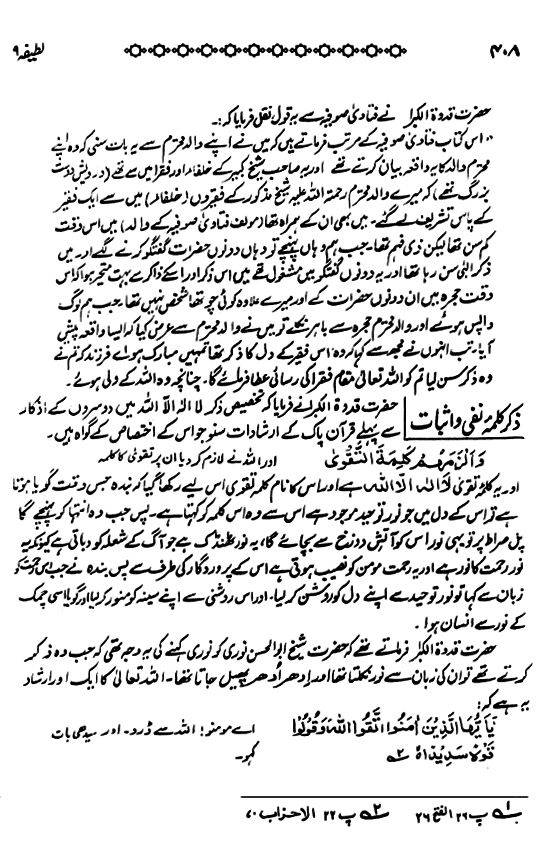 ۴۰۸ لطیفہ ۹
حضرت قدوۃ الکبرا نے فتاویٰ صوفیہ سے یہ قول نقل فرمایا کہ:۔
"اس کتاب فتاویٰ صوفیہ کے مرتب فرماتے ہیں کہ میں نے اپنے والد محترم سے یہ بات سنی کہ وہ اپنے
محترم والد کا یہ واقعہ بیان کرتے تھے اور یہ صاحب شیخ کبیر کے خلفا اور فقرا میں سے تھے (درویش دوست
بزرگ تھے) کہ میرے والد محترم رحمۃ اللہ علیہ شیخ مذکور کے فقیروں (خلفا) میں سے ایک فقیر
کے پاس تشریف لے گئے۔ میں بھی ان کے ہمراہ تھا (مولف فتاویٰ صوفیہ کے والد) میں اس وقت
کم سن تھا لیکن ذی فہم تھا۔ جب ہم وہاں پہنچے تو وہاں دونوں حضرات گفتگو کرنے لگے اور میں
ذکر الٰہی سن رہا تھا اور یہ دونوں گفتگو میں مشغول تھے میں اس ذکر اور اسکے ذاکر سے بہت متحیر ہوا کہ اس
وقت حجرہ میں ان دونوں حضرات کے اور میرے علاوہ کوئی چوتھا شخص نہیں تھا۔ جب ہم لوگ
واپس ہوئے اور والد محترم حجرہ سے باہر نکلے تو میں نے والد محترم سے عرض کیا کہ ایسا واقعہ پیش
آیا۔ تب انہوں نے مجھ سے کہا کہ وہ اس فقیر کے دل کا ذکر تھا تمہیں مبارک ہو اے فرزند کہ تم نے
وہ ذکر سن لیا تم کو اللہ تعالیٰ مقام فقرا کی رسائی عطا فرمائے گا۔ چنانچہ وہ اللہ کے ولی ہوئے۔
ذکر کلمہ نفی و اثبات
حضرت قدوۃ الکبرا نے فرمایا کہ تخصیص ذکر لا الٰہ الا اللہ میں دوسروں کے اذکار
سے پہلے قرآن پاک کے ارشادات سنو جو اس کے اختصاص کے گواہ ہیں۔
وَاَلْزَمَهُمْ كَلِمَةَ التَّقْوٰى اور اللہ نے لازم کر دیا ان پر تقویٰ کا کلمہ
اور یہ کلمہ تقویٰ لا الہ الا اللہ ہے اور اس کا نام کلمہ تقویٰ اس لیے رکھا گیا کہ بندہ جس وقت گویا ہوتا
ہے تو اس کے دل میں جو نور توحید موجود ہے اس سے وہ اس کلمہ کو کہتا ہے۔ پس جب وہ انتہا کو پہنچے گا
پل صراط پر تو یہی نور اس کو آتش دوزخ سے بچائے گا، یہ نور ٹھنڈک ہے جو آگ کے شعلہ کو دباتی ہے کیونکہ یہ
نور رحمت کا نور ہے اور یہ رحمت مومن کو نصیب ہوتی ہے اس کے پروردگار کی طرف سے پس بندہ نے جب اس کو
زبان سے کہا تو نور توحید سے اپنے دل کو روشن کر لیا۔ اور اس روشنی سے اپنے سینہ کو منور کر لیا اور گویا اسی چمک
کے نور سے انسان ہوا۔
حضرت قدوۃ الکبرا فرماتے تھے کہ حضرت شیخ ابوالحسن نوری کو نوری کہنے کی یہ وجہ تھی کہ جب وہ ذکر
کرتے تھے تو ان کی زبان سے نور نکلتا تھا اور ادھر اُدھر پھیل جاتا تھا۔ اللہ تعالیٰ کا ایک اور ارشاد
یہ ہے کہ:
يٰٓاَيُّهَا الَّذِيْنَ اٰمَنُوا اتَّقُوا اللّٰهَ وَقُوْلُوْا اے مومنو! اللہ سے ڈرو۔ اور سیدھی بات
قَوْلًا سَدِيْدًا ۵ ۲ کہو۔
۱ پ ۲۶ الفتح ۲۶ ۲ پ ۲۲ الاحزاب ۷۰